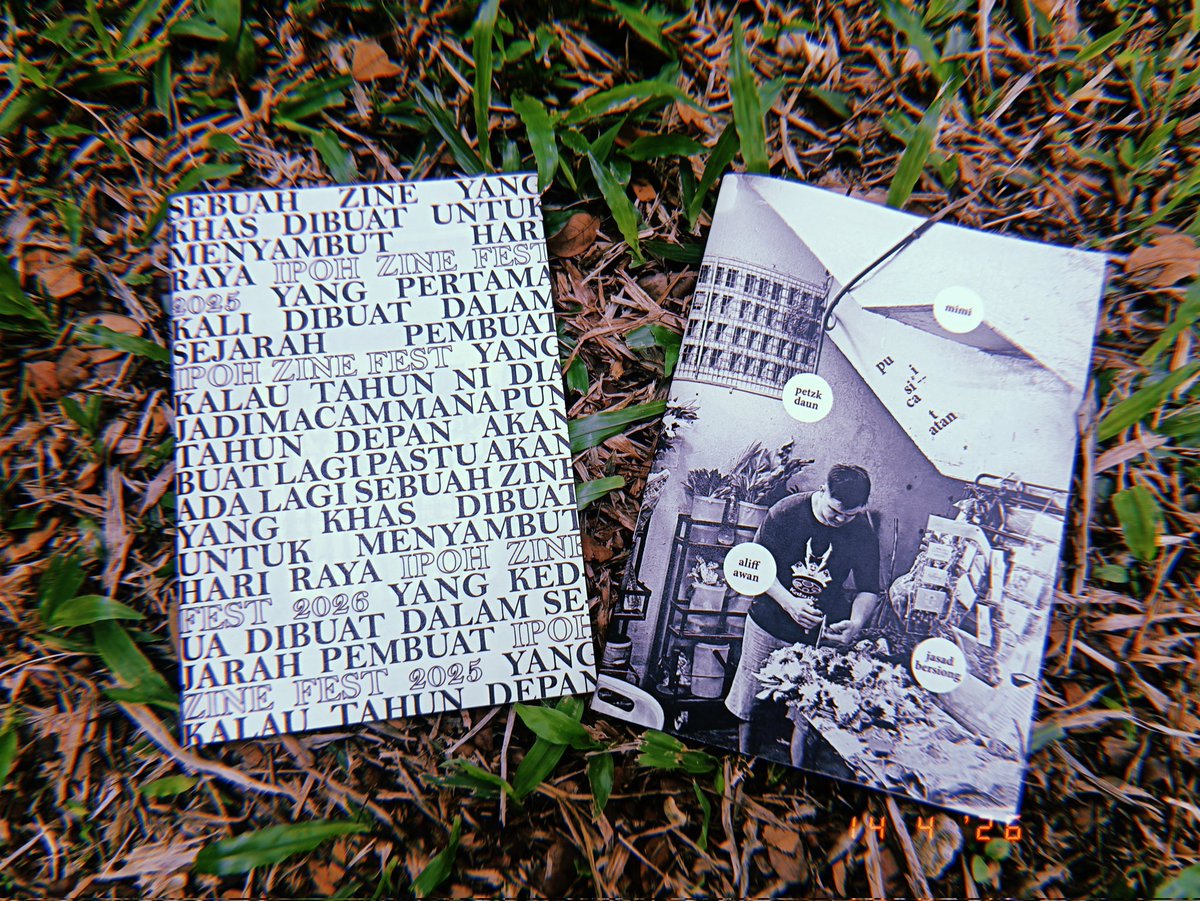 SEBUAH ZINE YANG
KHAS DIBUAT UNTUK
MENYAMBUT HARI
RAYA IPOH ZINE FEST
2025 YANG PERTAMA
KALI DIBUAT DALAM
SEJARAH PEMBUAT
IPOH ZINE FEST YANG
KALAU TAHUN NI DIA
JADI MACAM MANA PUN
TAHUN DEPAN AKAN
BUAT LAGI PASTU AKAN
ADA LAGI SEBUAH ZINE
YANG KHAS DIBUAT
UNTUK MENYAMBUT
HARI RAYA IPOH ZINE
FEST 2026 YANG KED-
UA DIBUAT DALAM SE-
JARAH PEMBUAT IPOH
ZINE FEST 2025 YANG
KALAU TAHUN DEPAN
mimi
pu
i/
si
ca
t
atan
petzk
daun
aliff
awan
jasad
bersiong
14 4 '26